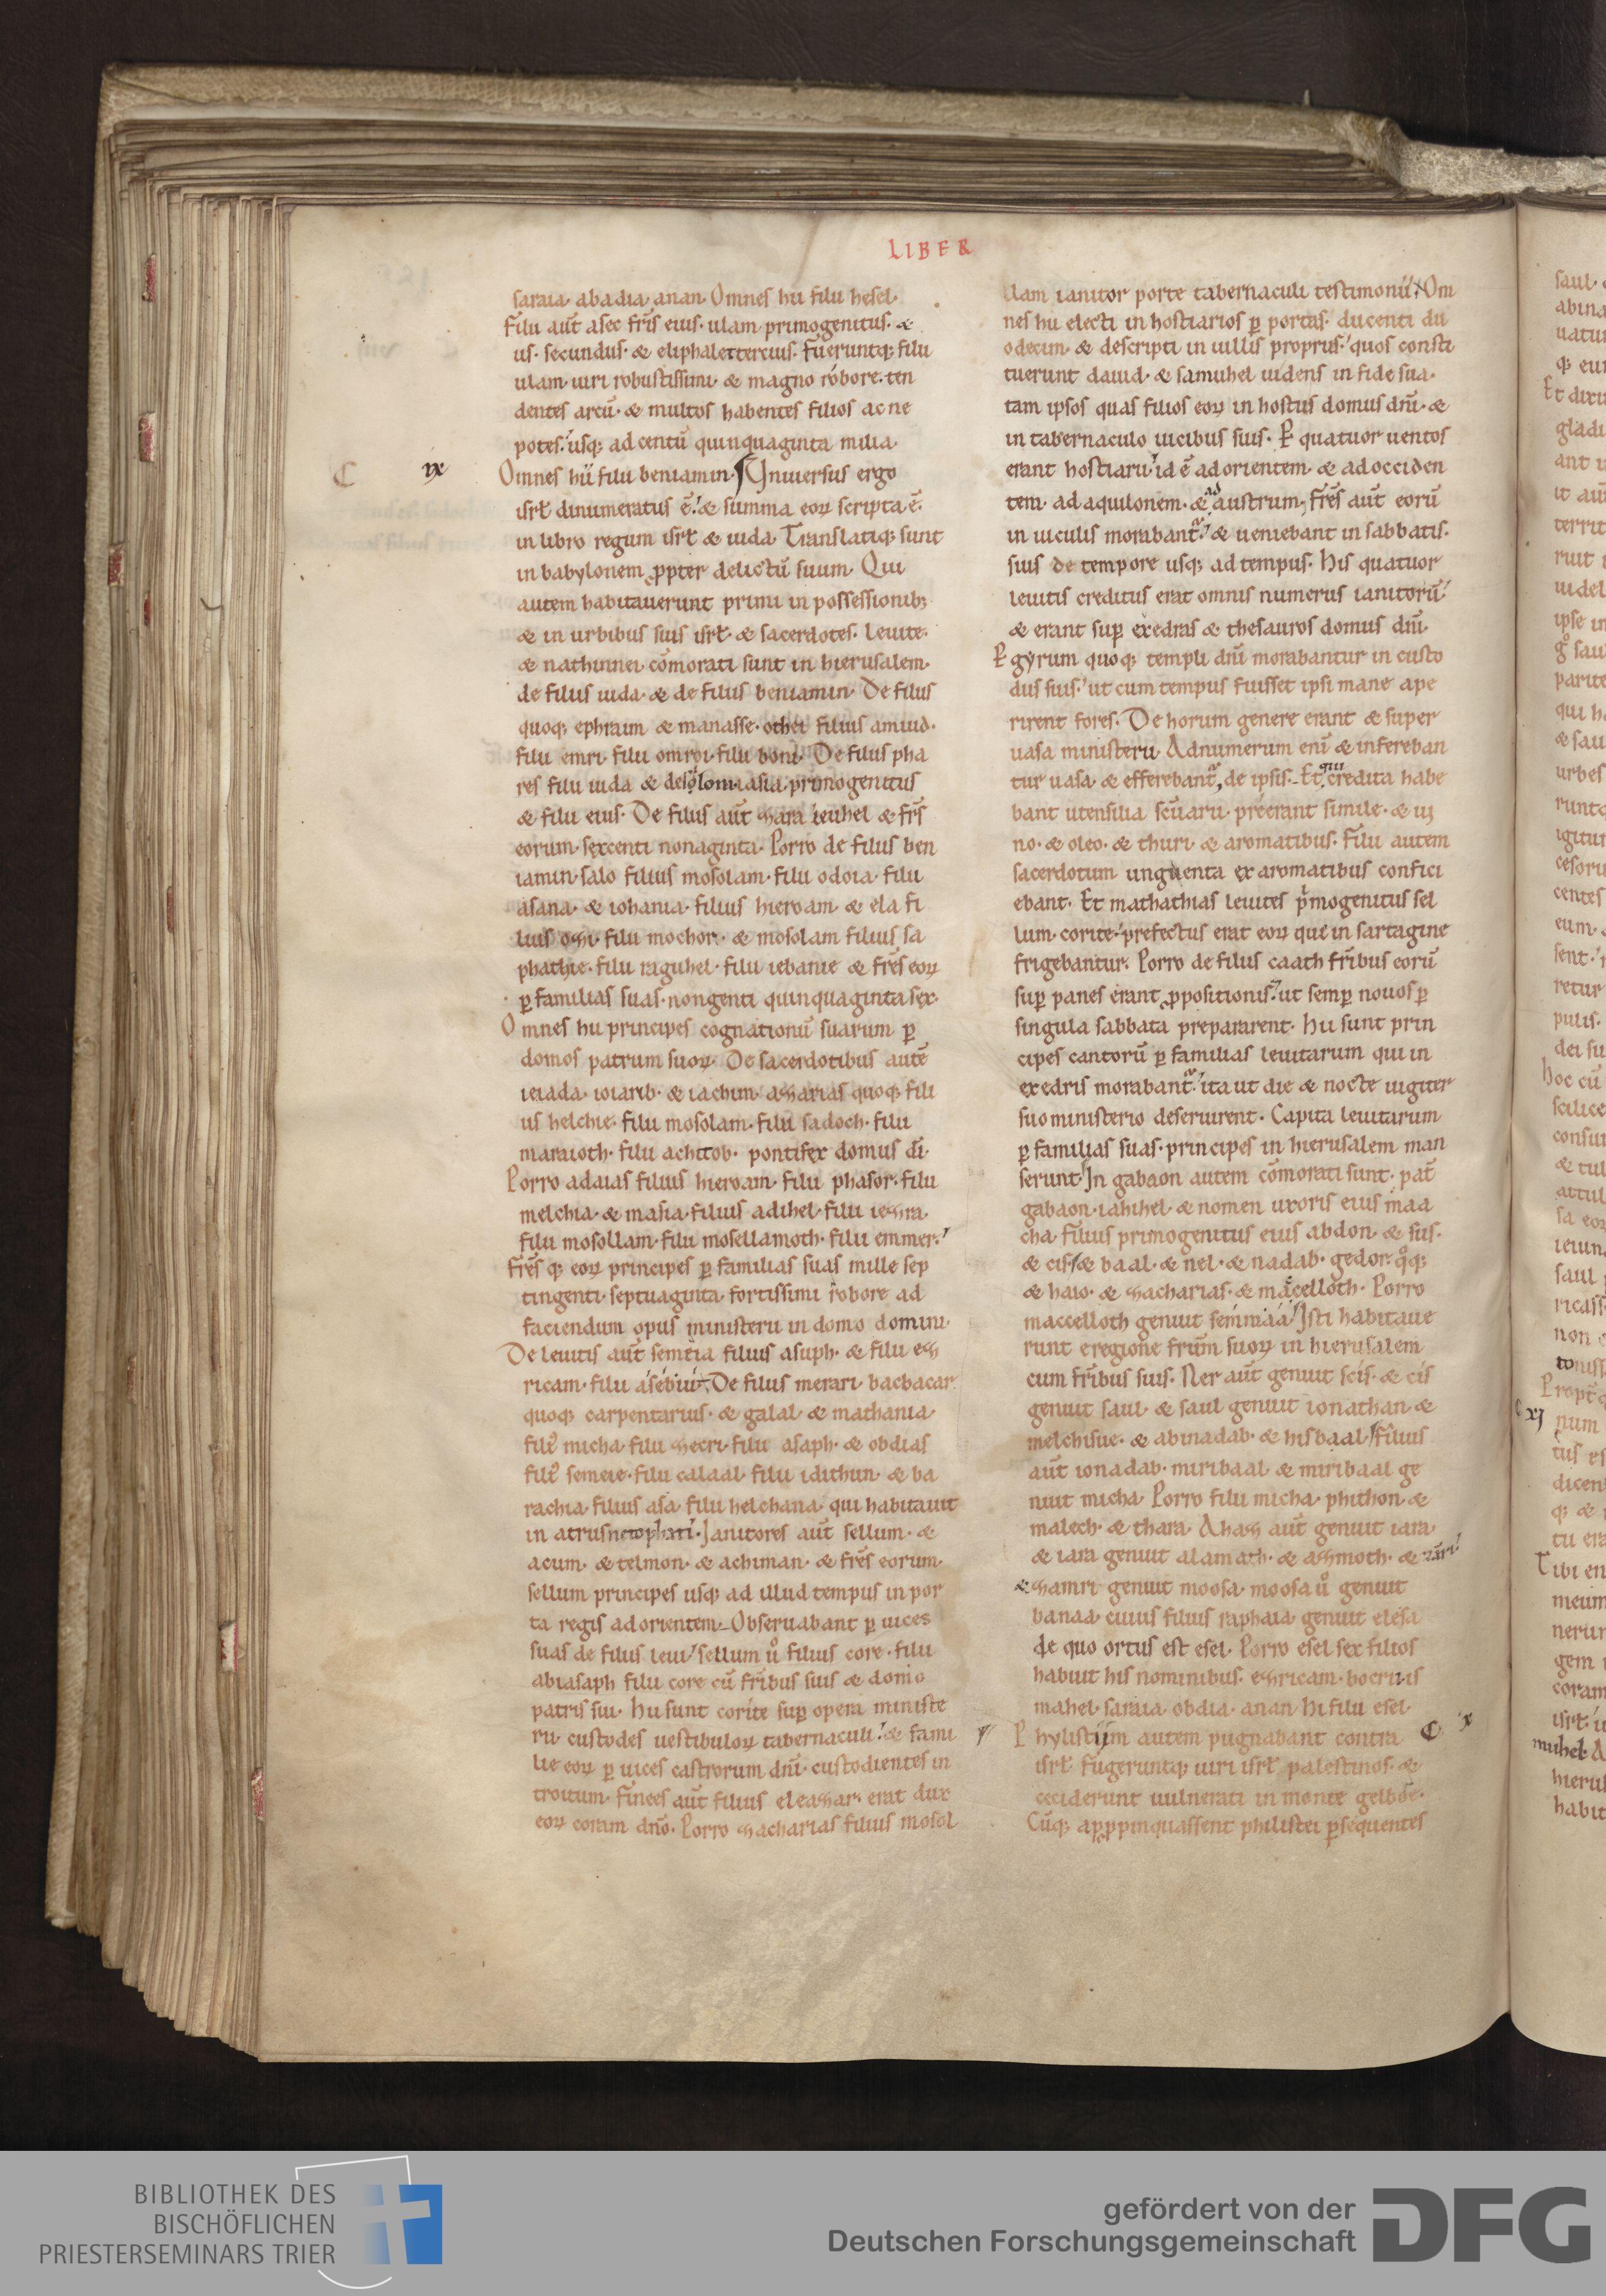 LIBER
saraia. abadia. anan. Omnes hii filii hesel.
Filii aut̄ asec fr̄is eius. ulam primogenitus. &
us. secundus. & eliphalet tercius. Fueruntq; filii
ulam. uiri robustissimi. & magno robore. ten
dentes arcū. & multos habentes filios ac ne
potes. usq; ad centū quinquaginta milia.
C ix
Omnes hii filii beniamin. Uniuersus ergo
isrl̄ dinumeratus ē. & summa eoꝝ scripta ē.
in libro regum isrl̄ & iuda. Translatiq; sunt
in babylonem ꝓpter delictū suum. Qui
autem habitauerunt primi in possessionib;
& in urbibus suis isrl̄. & sacerdotes. leuite.
& nathinnei cōmorati sunt in hierusalem.
de filiis iuda. & de filiis beniamin. De filiis
quoq; ephraim & manasse. othei filius amiud.
filii emri. filii omroi. filii boni. De filiis pha
res filii iuda & de solom. asia primogenitus
& filii eius. De filiis aut̄ zara ieuhel & fr̄s
eorum. sexcenti nonaginta. Porro de filiis ben
iamin. salo filius mosolam. filii odoia. filii
asana. & iobania. filius hieroam. & ela fi
lius ozi. filii mochori. & mosolam filius sa
phathie. filii raguhel. filii iebanie & fr̄es eoꝝ
ꝑ familias suas. nongenti quinquaginta sex.
Omnes hii principes cognationū suarum ꝑ
domos patrum suoꝝ. De sacerdotibus autē
ieiada. ioiarib. & iachim. azarias quoq; fili
us helchie. filii mosolam. filii sadoch. filii
maraioth. filii achitob. pontifex domus dī.
Porro adaias filius hieroam. filii phasor. filii
melchia. & masia. filius adihel. filii iezra.
filii mosollam. filii mosellamoth. filii emmer.
Fr̄es q; eoꝝ principes ꝑ familias suas mille sep
tingenti. septuaginta. fortissimi robore ad
faciendum opus ministerii in domo domini.
De leuitis aut̄ semeia filius asuph. & filii ez
ricam. filii asebiui. De filiis merari bacbacar
quoq; carpentarius. & galal & mathania.
fili9 micha. filii zecri. filii asaph. & obdias
fili9 semeie. filii calaal filii idithun. & ba
rachia. filius asa. filii helchana. qui habitauit
in atriis netophati. Janitores aut̄ sellum. &
acum. & telmon. & achiman. & fr̄es eorum.
sellum principes usq; ad illud tempus in por
ta regis ad orientem. Obseruabant ꝑ uices
suas de filiis leui. sellum u͛o filius core. filii
abiasaph filii core cū fr̄ibus suis & domo
patris sui. Hii sunt corite suꝑ opera ministe
rii. custodes uestibuloꝝ tabernaculi. & fami
lie eoꝝ ꝑ uices castrorum dn̄i. custodientes in
troitum. Finees aut̄ filius eleazar. erat dux
eoꝝ coram dn̄o. Porro zacharias filius mosol
lam ianitor porte tabernaculi testimonii. Om
nes hii electi in hostiarios ꝑ portas. ducenti du
odecim. & descripti in uillis propriis. quos consti
tuerunt dauid. & samuhel uidens in fide sua.
tam ipsos quas filios eoꝝ in hostiis domus dn̄i. &
in tabernaculo uicibus suis. P quatuor uentos
erant hostiarii. id ē ad orientem. & ad occiden
tem. ad aquilonem. & ad austrum. Fr̄es aut̄ eorū
in uiculis morabant᷑. & ueniebant in sabbatis.
suis de tempore usq; ad tempus. His quatuor
leuitis creditus erat omnis numerus ianitorū.
& erant suꝑ exedras & thesauros domus dn̄i.
P gyrum quoq; templi dn̄i morabantur in custo
diis suis. ut cum tempus fuisset ipsi mane ape
rirent fores. De horum genere erant & super
uasa ministerii. Ad numerum enī & infereban
tur uasa. & efferebant᷑, de ipsis. Et qui credita habe
bant utensilia sc̄uarii. preerant simile. & ui
no. & oleo. & thuri. & aromatibus. Filii autem
sacerdotum unguenta ex aromatibus confici
ebant. Et mathathias leuites p͛mogenitus sel
lum. corite. prefectus erat eoꝝ que in sartagine
frigebantur. Porro de filiis caath fr̄ibus eorū
suꝑ panes erant ꝓpositionis. ut semꝑ nouos ꝑ
singula sabbata prepararent. Hii sunt prin
cipes cantorū ꝑ familias leuitarum qui in
exedris morabant᷑. ita ut die & nocte iugiter
suo ministerio deseruirent. Capita leuitarum
ꝑ familias suas. principes in hierusalem man
serunt. In gabaon autem cōmorati sunt. pat̄
gabaon. iahihel. & nomen uxoris eius maa
cha. Filius primogenitus eius abdon. & sus.
& cis. & baal. & nel. & nadab. gedor. q̊q;
& haio. & zacharias. & macelloth. Porro
maccelloth genuit semmaa. Isti habitaue
runt e regione frūm suoꝝ in hierusalem
cum fr̄ibus suis. Ner aut̄ genuit scis. & cis
genuit saul. & saul genuit ionathan. &
melchisue. & abinadab. & hisbaal. filius
aut̄ ionadab. miribaal. & miribaal ge
nuit micha. Porro filii micha. phithon. &
malech. & thara. Ahaz aut̄ genuit iara.
& iara genuit alamath. & azmoth. & zāri
& zamri genuit moosa. moosa u͛o genuit
banaa. cuius filius raphaia genuit elesa
de quo ortus est esel. Porro esel sex filios
habuit his nominibus. ezricam. bocru. is
mahel. saraia. obdia. anan. hi filii esel.
Phylistiim autem pugnabant contra C x
isrl̄. Fugeruntq; uiri isrl̄ palestinos. &
ceciderunt uulnerati in monte gelboe.
Cūq; apꝓpinquassent philistei ꝑsequentes
BIBLIOTHEK DES
BISCHÖFLICHEN
PRIESTERSEMINARS TRIER
gefördert von der
Deutschen Forschungsgemeinschaft
DFG